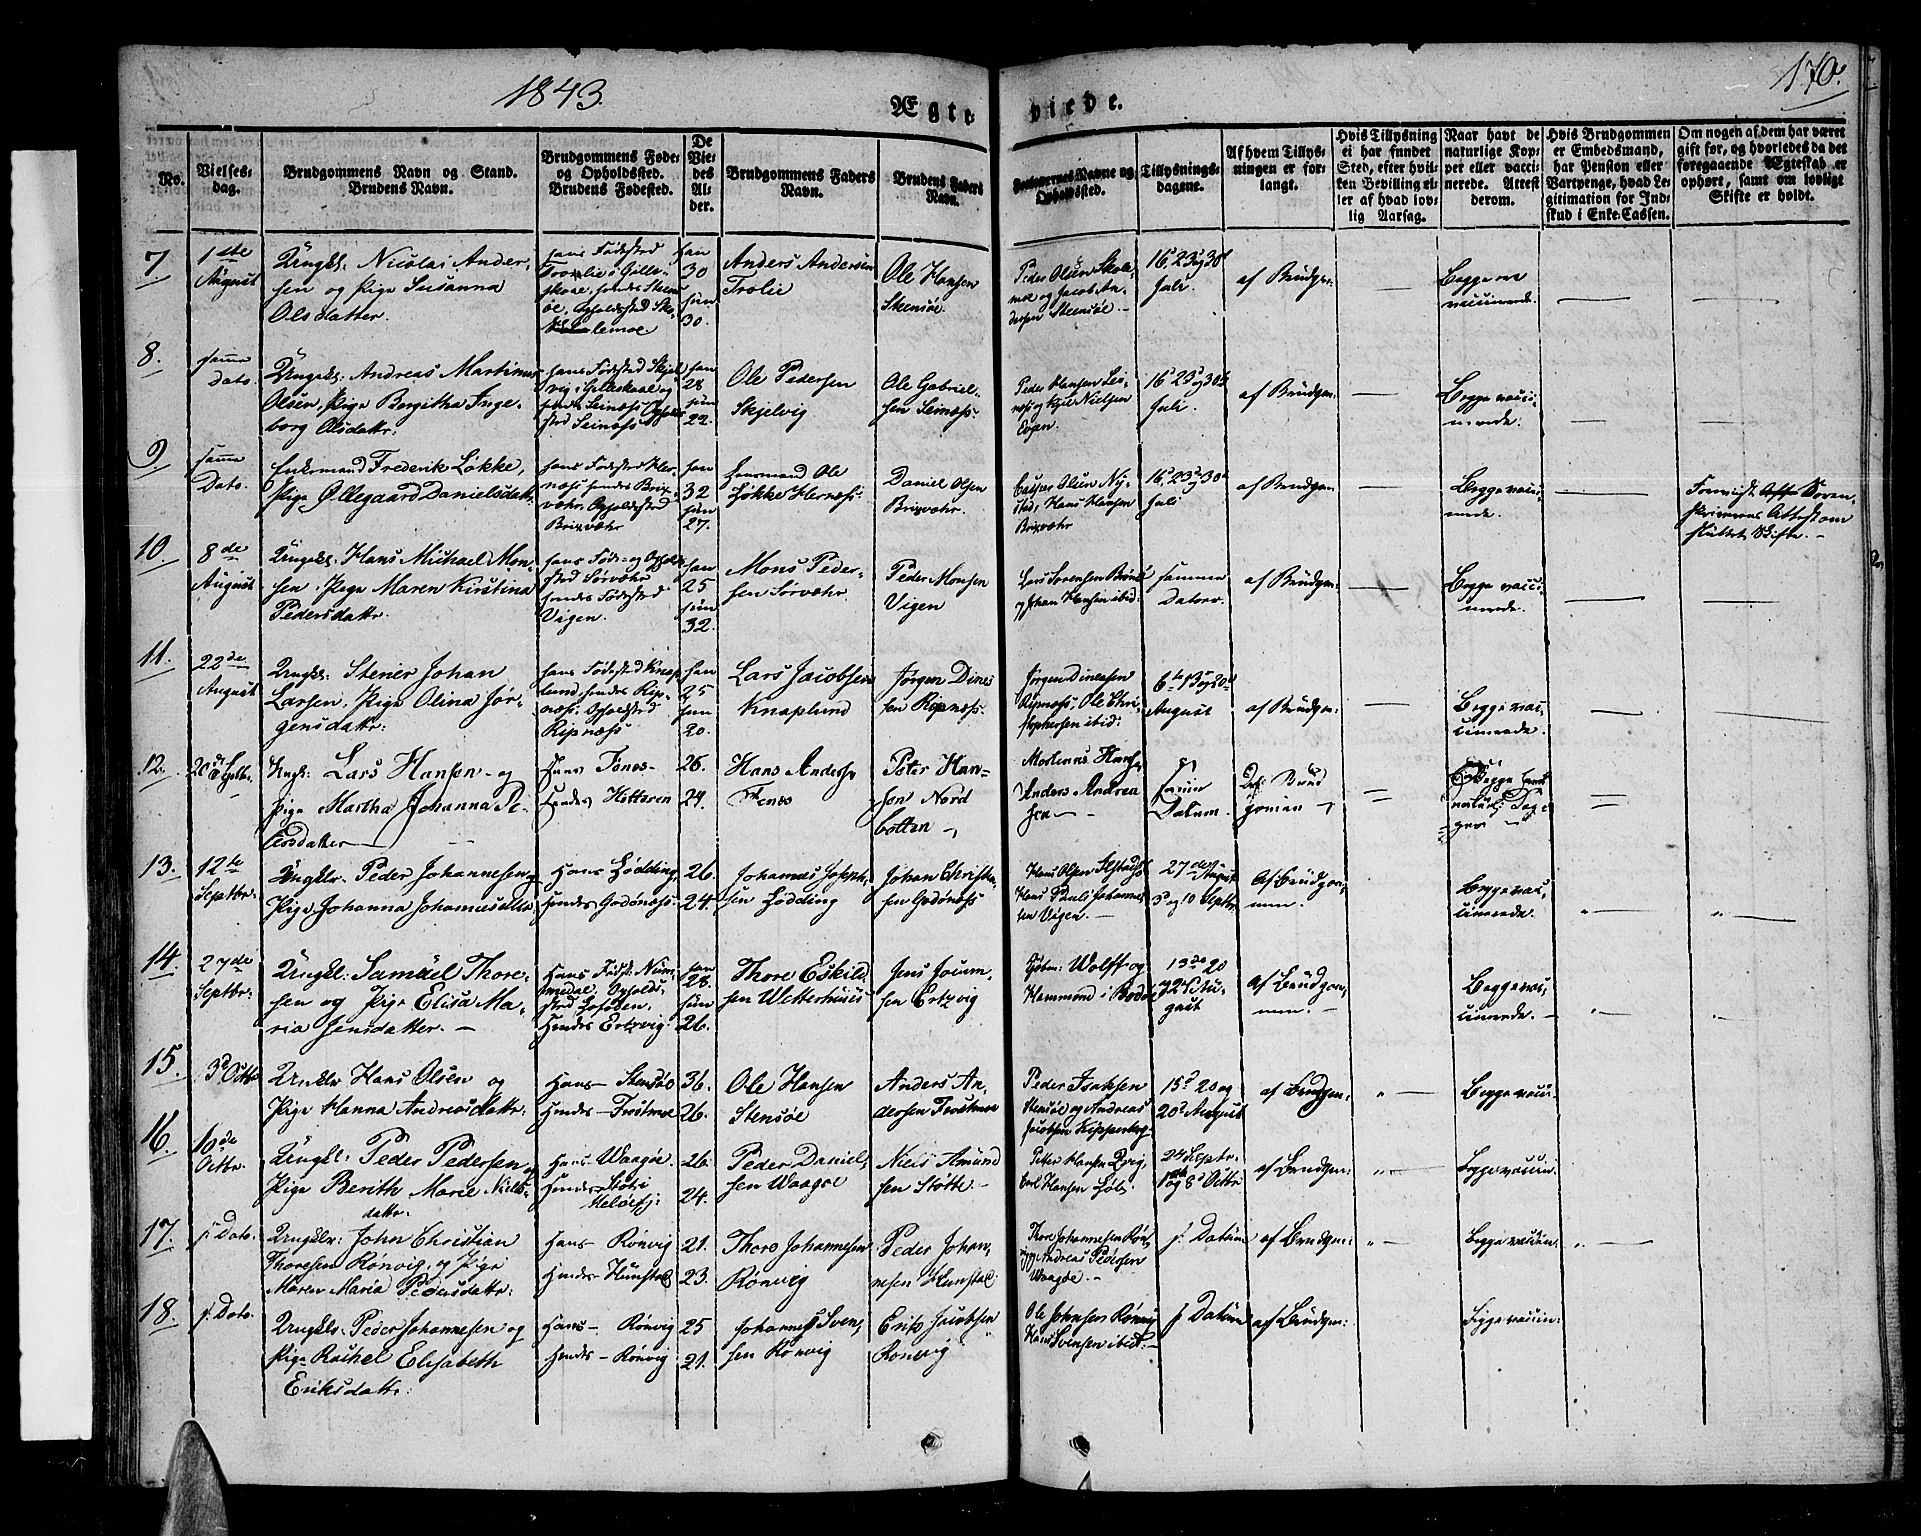 1843.
Ægte
viede.
170.
No.
Vielses-
dag.
Brudgommens Navn og Stand.
Brudens Navn.
Brudgommens Føde-
og Opholdssted.
Brudens Fødested.
De
Vie-
des
Al-
der.
Brudgommens Faders
Navn.
Brudens Faders
Navn.
Forlovernes Navne og
Opholdssted.
Tillysnings-
dagene.
Af hvem Tillys-
ningen er for-
langt.
Hvis Tillysning
ei har fundet
Sted, efter hvil-
ken Bevilling el-
ler af hvad lov-
lig Aarsag.
Naar havt de
naturlige Kop-
per eller vacci-
nerede. Attest
derom.
Hvis Brudgommen
er Embedsmand,
har Pension eller
Vartpenge, hvad Le-
gitimation for Ind-
skud i Enke-Cassen.
Om nogen af dem har været
gift før, og hvorledes da det
foregaaende Ægteskab er
ophørt, samt om lovligt
Skifte er holdt.
7.
1ste
August
Ungkl: Nicolai Ander-
sen og Pige Susanna
Olsdatter.
hans Fødested
han
30
hun
30.
Anders Andersen
Trolie
Ole Hansen
Steensøe
Peder Olsen Skole-
moe og Jacob An-
dersen Steensøe.
16 23 og 30d
Juli
af Brudgom:
Begge va
vaccinerede.
8.
samme
Dato.
Ungkl: Andreas Martinus
Olsen, Pige Bergitha Inge-
borg Olsdattr:
hans Fødested Skjel-
vig i Gilleskaal og
hendes Seinæss
han
28
hun
22.
Ole Pedersen
Skjelvig
Ole Gabriel-
sen Seinæss.
Peder Hansen
og Kjel Nielsen
Evjen
16 23 og 30d
Juli.
af Brudgom:
Begge vacci-
nerede.
9.
samme
Dato.
Enkemand Frederik Løkke,
Pige Øllegaard Danielsdattr
hans Fødested
hendes
Opholdsted
Brixværhr
han
32
hun
27.
Ole
Løkke
Daniel Olsen
Brixværhr.
Casper Olsen Ny-
stad, Hans Hansen
Brixværhr
16 23 og 30d
Juli
af Brudgom
Begge vacci-
nerede.
Foreviist Soren-
skriverens Attest om
sluttet Skifte. –
10.
8de
August
Ungkl: Hans Michael Mon-
sen, Pige Maren Kirstina
Pedersdattr.
hans Føde- og Ophold-
sted Sørværhr
hendes Fødested
Vigen.
han
25
hun
32.
Mons Peder-
sen Sørværhr.
Peder Monsen
Vigen
Lars Sørensen
og Johan Hansen ibid:
samme
Datoer.
af Brudgom:
Begge vacci-
nerede.
11.
22de
August
Ungkl: Stener Johan
Larsen, Pige Olina Jør-
gensdattr:
hans Fødested Knap-
lund, hendes Rip-
næss. Opholdsted
Ripnæss
han
25
hun
20.
Lars Jacobsen
Knaplund
Jørgen Dines-
sen Ripnæss.
Jørgen Dinessen
Ripnæss, Ole Chri-
stophersen ibid:
6te 13 og 20d
August
af Brudgom:
Begge vac-
cinerede.
12.
Ungk: Lars Hansen og
Pige Martha Johanna Pe-
tersdatter
Hans Fones
Hendes Hitteren
26.
24.
Hans Anders
Peter Han-
sen Nord
botten
Anders Andrea
Datum
Brud
gomen
Begge
13.
12te
Septbr.
Ungklr. Peder Johannesen og
Pige Johanna Johannesdattr
Hans Lødding,
Hendes Godønæss.
26.
24.
Johannes Joseph-
sen Lødding
Johan Christia-
sen Godønæss
Hans Olsen
Hans Pauli Johannes-
sen Vigen. –
27de August
3d og 10 Septbr.
Af Brudgom-
men.
Begge vac-
cinerede.
14.
27de
Septbr:
Ungkl: Samuel Thore-
sen og Pige Elisa Ma-
ria Jensdatter. –
Hans Fødst: Num-
medal, Opholds-
sted Lofoden.
Hendes Ertzvig.
han
28.
hun
26.
Thore Eskild-
sen Wetterhuus
Jens Joium-
sen Ertzvig
Kjøbm: Wolff og
Hammond i Bodøe
13de 20
27 Au-
gust
Af Brudgom-
men. –
Begge vac-
cinerede. –
15.
3d Octbr
Ungklr Hans Olsen og
Pige Hanna Andreasdattr.
Hans – Stensøe
Hendes – Tustmoe
36.
26.
Ole Hansen
Stensøe
Anders An-
dersen Tustmoe
Peder Isaksen
Stensøe og Andreas
Jacobsen Kipperberg.
13d 20 og
August
af Brudgom:
Begge vacci.
16.
10de
Octbr.
Ungkl: Peder Pedersen og
Pige Berith Marie Niels-
dattr.
Hans Waagøe.
Hendes Støtt
Meløefj:
26.
24.
Peder Daniel-
sen Waagøe
Niels Amund
sen Støtt –
Peter Hansen
Carl Hansen
24 Septr.
1ste og 8d Octbr
af Brudgom:
Begge vaccin.
17.
s. Dato.
Ungklr: John Christian
Thoresen Rønvig, og Pige
Maren Maria Pedersdattr:
Hans – Rønvig
Hendes – Hunstad
21.
23.
Thore Johannesen
Rønvig
Peder Johan-
nesen Hunstad.
Thore Johannesen Røn-
vig, Andreas Pedersen
Waagøe. –
s. Datum
af Brudgom:
Begge vaccin.
18.
s. Dato.
Ungklr: Peder Johannesen og
Pige Rachel Elisabeth
Eriksdattr:
Hans – Rønvig
Hendes – Rønvig
25
21.
Johannes Sven-
sen Rønvig
Erik Jacobsen
Rønvig
Ole Johnsen Rønvig
Hans Svensen ibid. –
s. Datum
af Brudgom:
Begge vaccin: